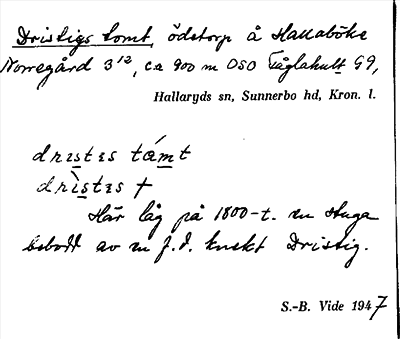 Dristigs tomt, ödetorp å Hallaböke
Norregård 3¹², ca 900 m OSO Fåglahult G9,
Hallaryds sn, Sunnerbo hd, Kron. l.
drɪstɛs tæmt
drɪstɛs †
Här låg på 1800-t. en stuga
bebodd av en f.d. knekt Dristig.
S.-B. Vide 1947